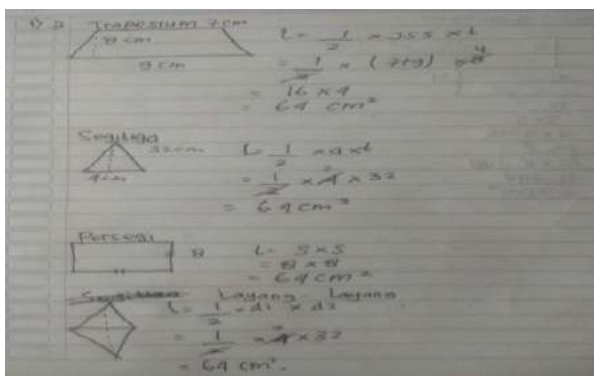 1) a Trapesium 7cm
8 cm
9 cm
L = 1/2 × JSS × t
= 1/2 × (7+9) × 8 4
= 16 × 4
= 64 cm²
Segitiga
32cm
4cm
L 1/2 × a × t
= 1/2 × 4 2 × 32
= 64 cm²
Persegi
8
L = S × S
= 8 × 8
= 64 cm²
Segitiga Layang Layang
L = 1/2 × d1 × d2
= 1/2 × 4 2 × 32
= 64 cm².